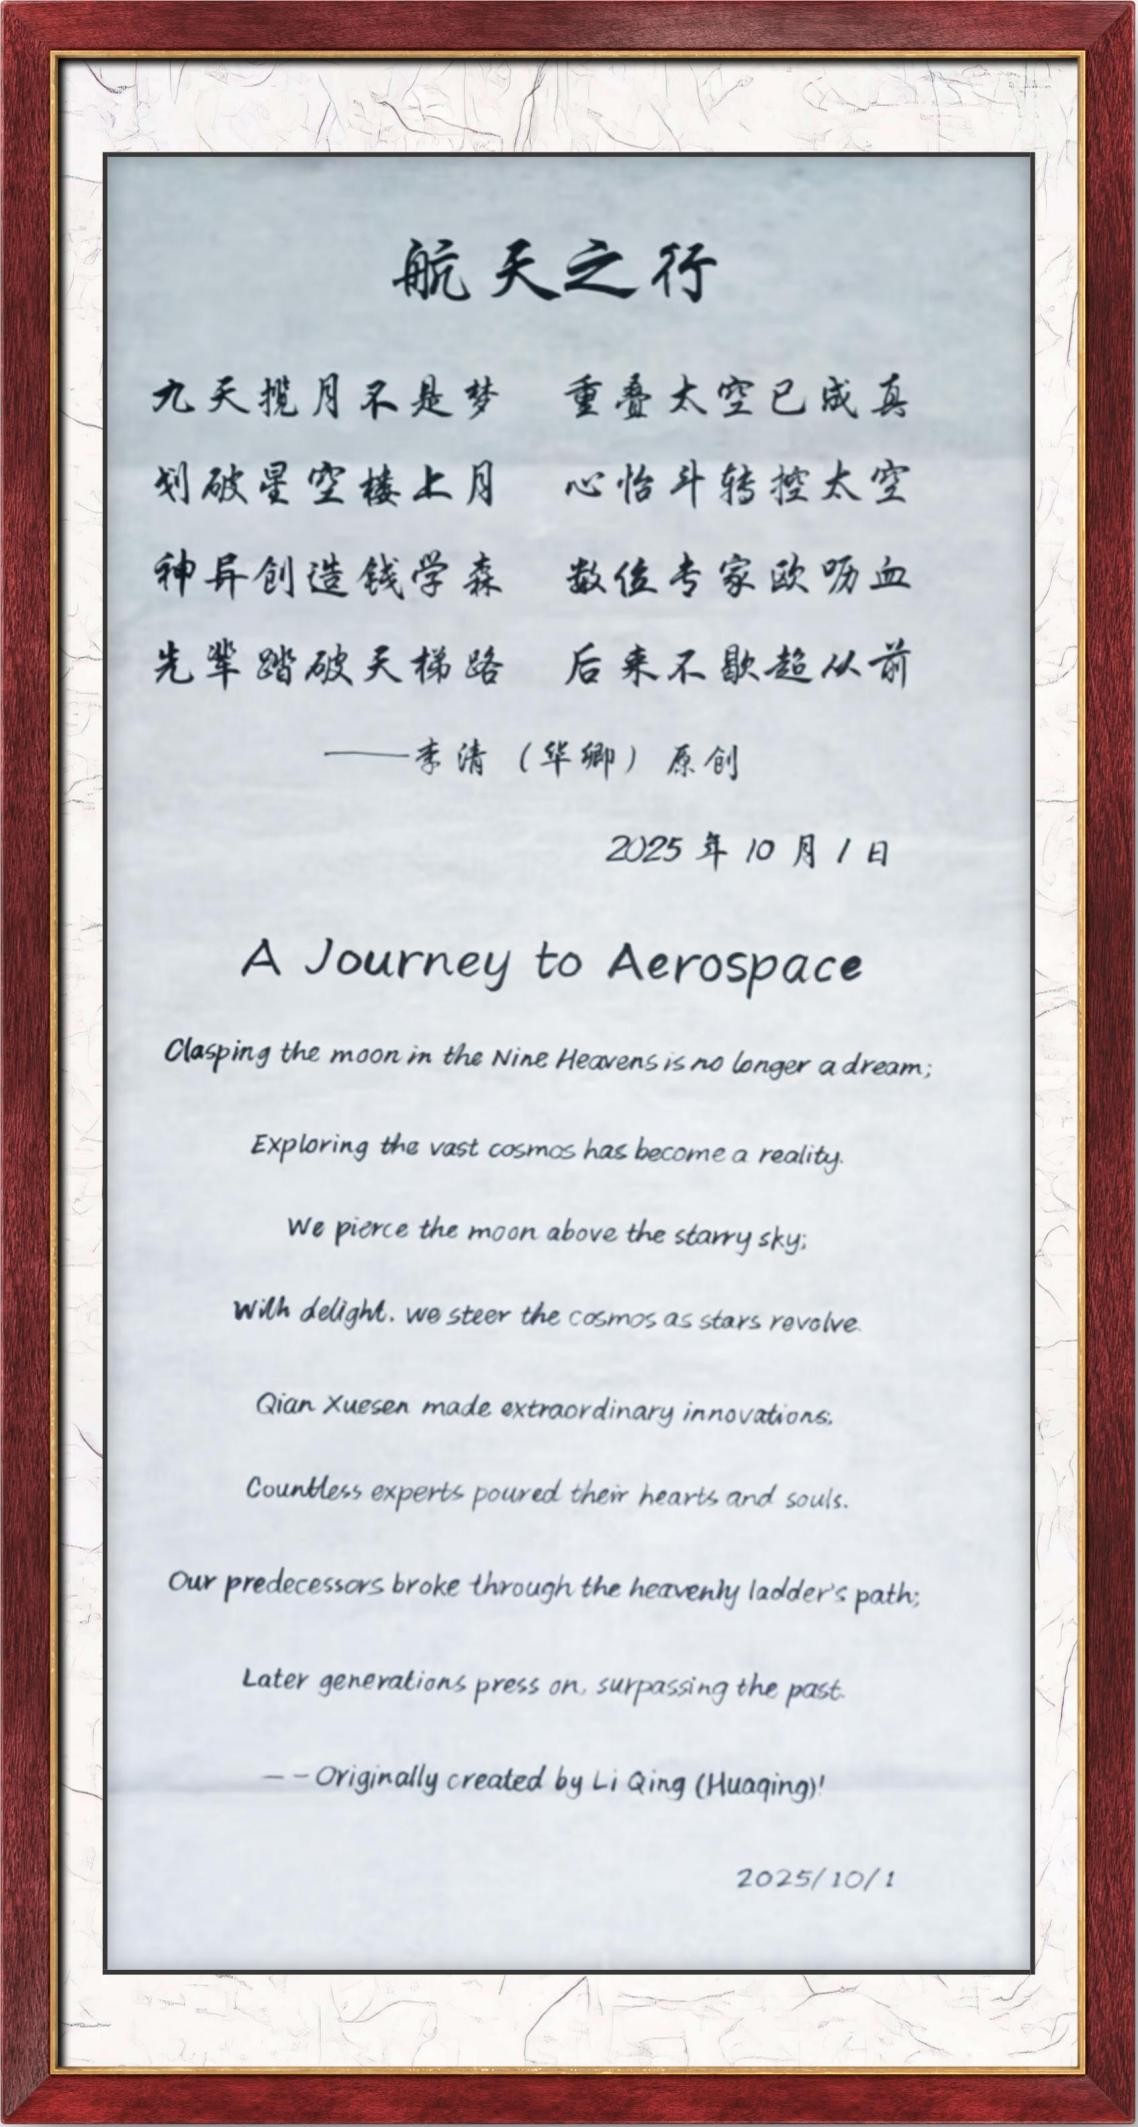 航天之行
九天揽月不是梦 重叠太空已成真
划破星空楼上月 心怡斗转控太空
神异创造钱学森 数位专家欧呖血
先辈踏破天梯路 后来不歇超从前
——李清（华卿）原创
2025年10月1日
A Journey to Aerospace
Clasping the moon in the Nine Heavens is no longer a dream;
Exploring the vast cosmos has become a reality.
We pierce the moon above the starry sky;
With delight. we steer the cosmos as stars revolve.
Qian Xuesen made extraordinary innovations;
Countless experts poured their hearts and souls.
Our predecessors broke through the heavenly ladder's path;
Later generations press on, surpassing the past.
--Originally created by Li Qing (Huaqing)!
2025/10/1